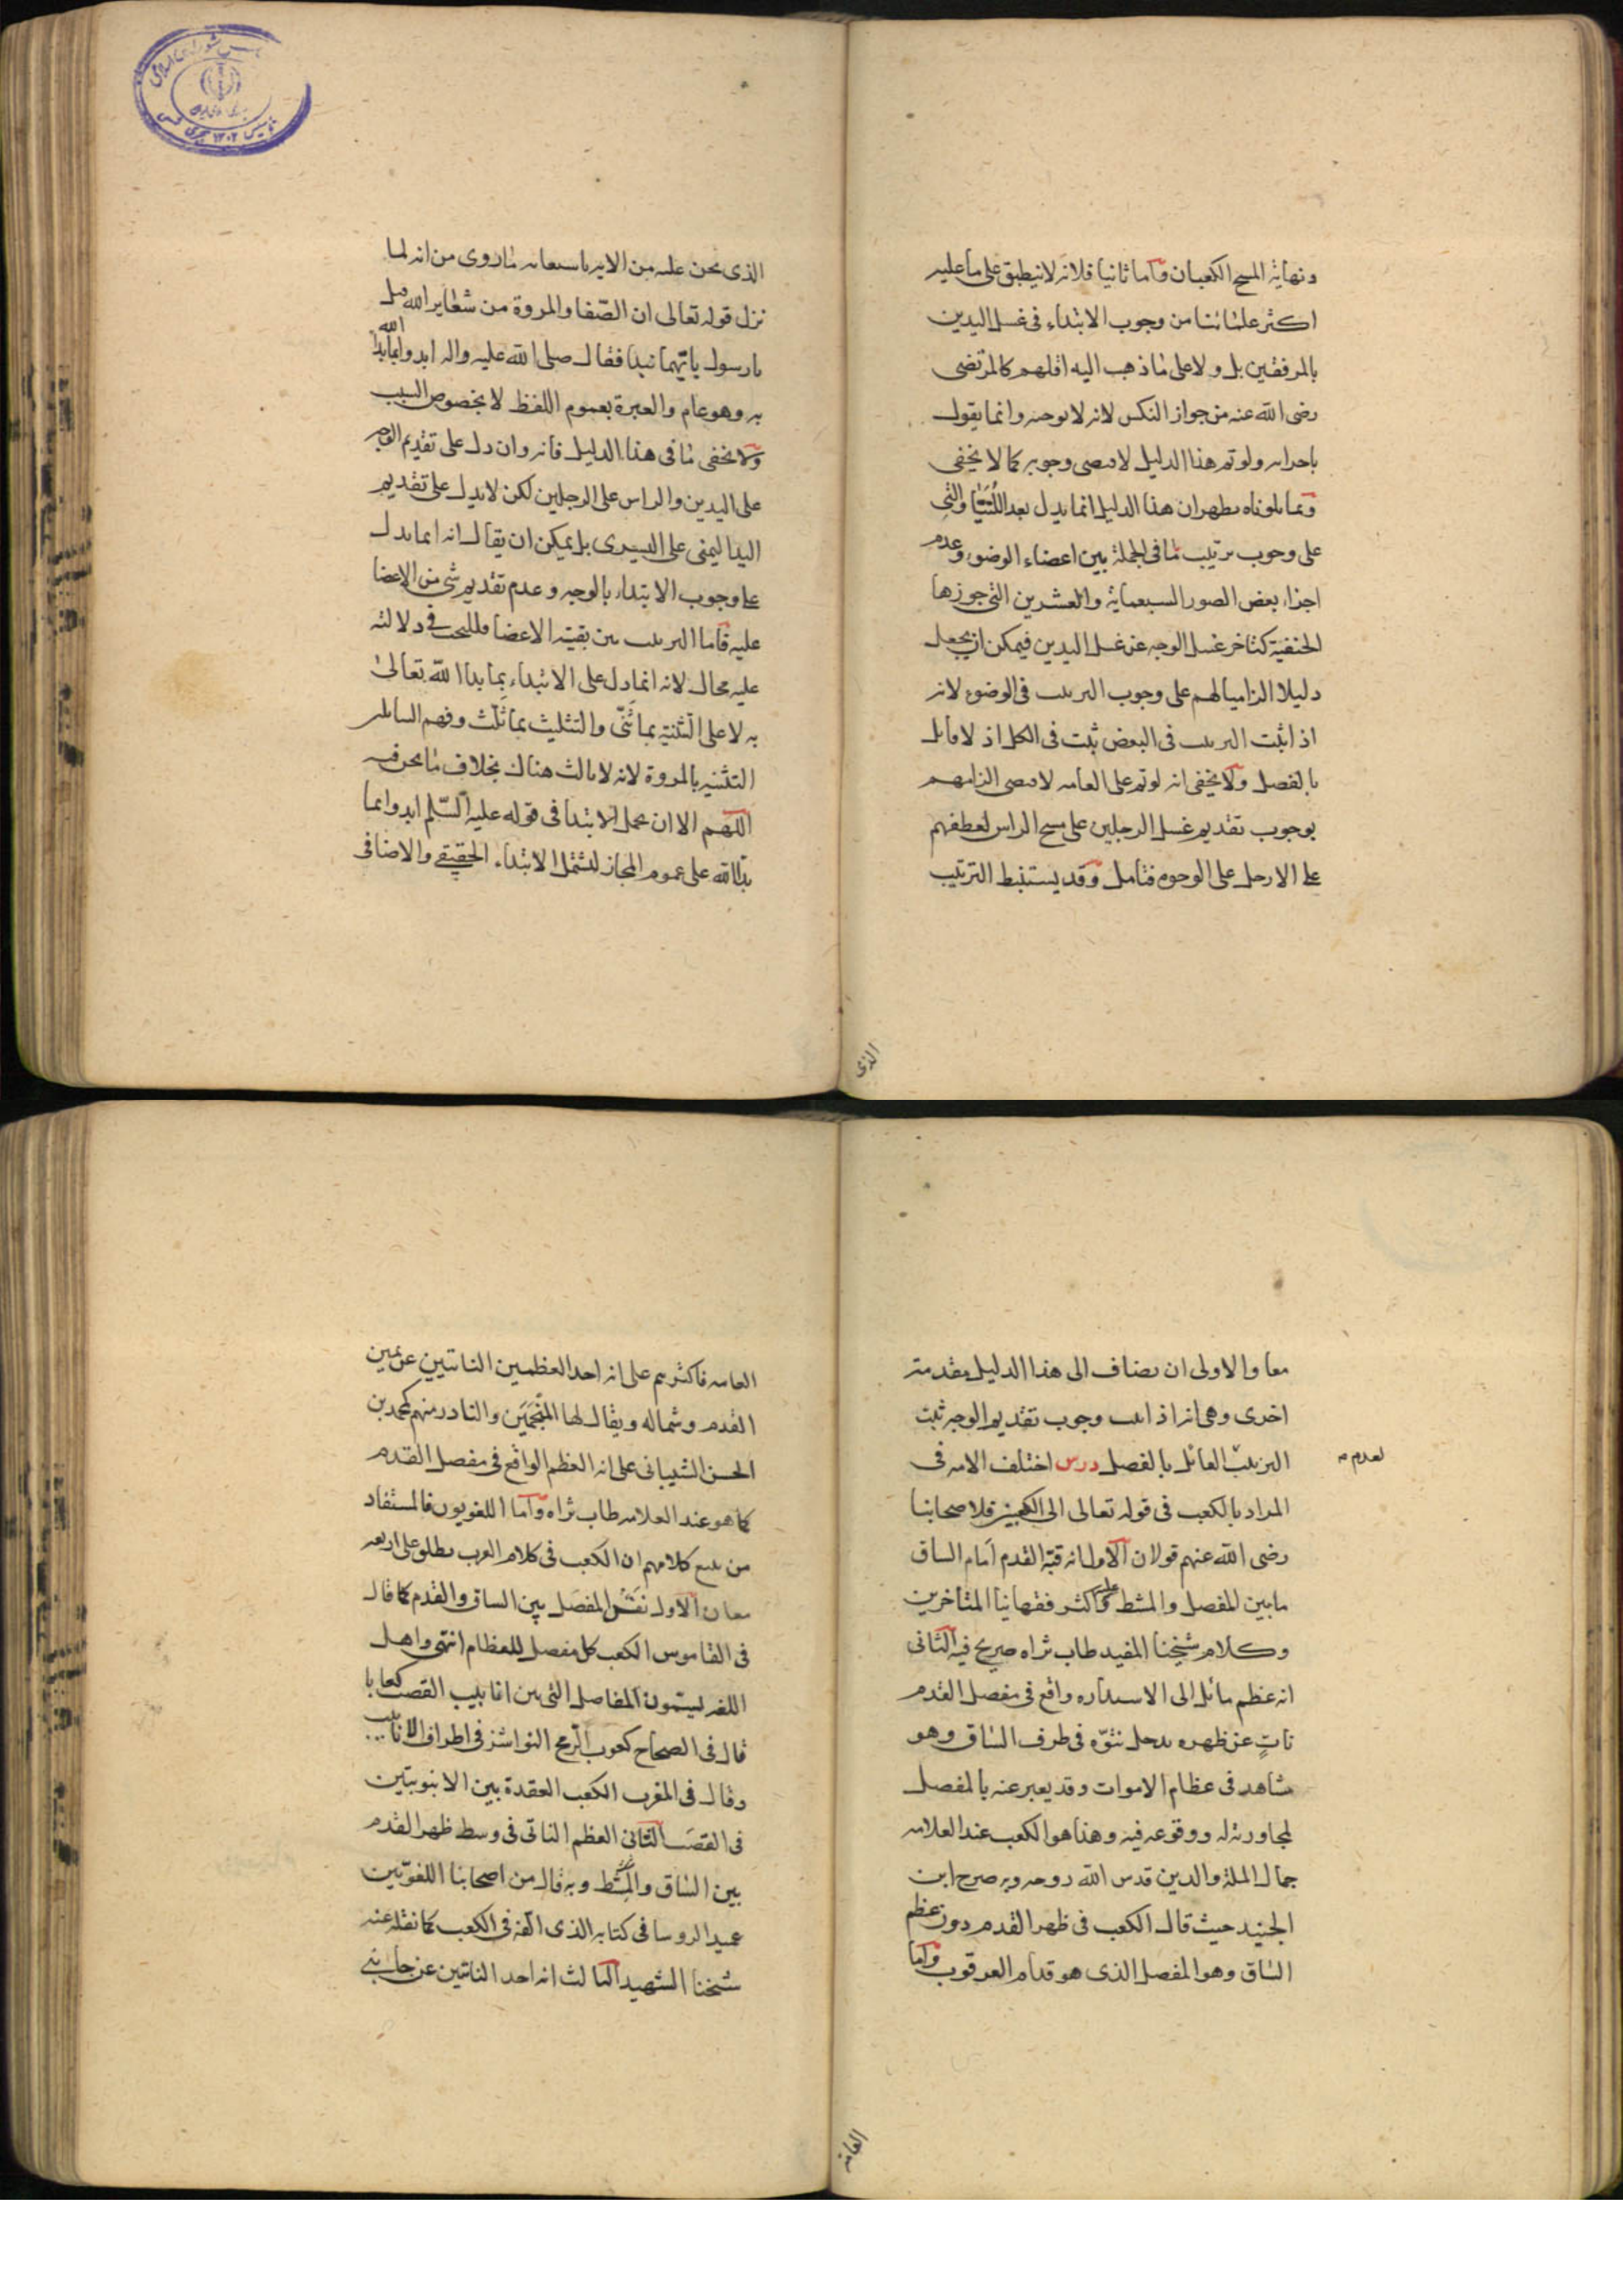 ونهاية المسح الكعبان واما ثانيا فلانه لا ينطبق على ما عليه
اكثر علمائنا من وجوب الابتداء فى غسل اليدين
بالمرفقين بل ولا على ما ذهب اليه اقلهم كالمرتضى
رضى الله عنه من جواز النكس لانه لا يوجبه وانما يقول
باجزائه ولو تم هذا الدليل لاقتضى وجوبه كما لا يخفى
ومما تلوناه يظهر ان هذا الدليل انما يدل بعد اللتيا والتى
على وجوب ترتيب ما فى الجملة بين اعضاء الوضوء وعدم
اجزاء بعض الصور السبعماية والعشرين التى جوزها
الحنفية كتاخر غسل الوجه عن غسل اليدين فيمكن ان يجعل
دليلا الزاميا لهم على وجوب الترتيب فى الوضوء لانه
اذا ثبت الترتيب فى البعض ثبت فى الكل اذ لا قايل
بالفصل ولا يخفى انه لو تم على العامه لاقتضى الزامهم
بوجوب تقديم غسل الرجلين على مسح الراس لعطفهم
على الارجل على الوجوه فتامل وقد يستنبط الترتيب
الذى
الذى نحن عليه من الايه باستعانه ما روى من انه لما
نزل قوله تعالى ان الصفا والمروة من شعاير الله قيل
يا رسول بايهما نبدا فقال صلى الله عليه واله ابدوا بما بدا الله
به وهو عام والعبرة بعموم اللفظ لا بخصوص السبب
ولا يخفى ما فى هذا الدليل فانه وان دل على تقديم الوجه
على اليدين والراس على الرجلين لكن لا يدل على تقديم
اليد اليمنى على اليسرى بل يمكن ان يقال انه انما يدل
على وجوب الابتداء بالوجه وعدم تقديم شى من الاعضا
عليه فاما الترتيب بين بقية الاعضا فللبحث فى دلالته
عليه مجال لانه انما دل على الابتداء بما بدا الله تعالى
به لا على التثنية بما ثنى والتثليث بما ثلث وفهم السايل
التثنيه بالمروة لانه لا ثالث هناك بخلاف ما نحن فيه
اللهم الا ان يحمل الابتدا فى قوله عليه السلم ابدوا بما
بدا الله على عموم المجاز ليشمل الابتداء الحقيقى والاضافى
معا والاولى ان يضاف الى هذا الدليل مقدمته
اخرى وهى انه اذا ثبت وجوب تقديم الوجه ثبت
الترتيب القائل بالفصل درس اختلف الامه فى
لعدم
المراد بالكعب فى قوله تعالى الى الكعبين فلاصحابنا
رضى الله عنهم قولان الاول انه قبة القدم امام الساق
ما بين المفصل والمشط وعليه اكثر فقهاينا المتاخرين
وكلام شيخنا المفيد طاب ثراه صريح فيه الثانى
انه عظم مائل الى الاستداره واقع فى مفصل القدم
نات عن ظهره يدخل نتوه فى طرف الساق وهو
مشاهد فى عظام الاموات وقد يعبر عنه بالمفصل
لمجاورته له ووقوعه فيه وهذا هو الكعب عند العلامه
جمال الملة والدين قدس الله روحه وبه صرح ابن
الجنيد حيث قال الكعب فى ظهر القدم دون عظم
الساق وهو المفصل الذى هو قدام العرقوب واما
العامه
العامه فاكثرهم على انه احد العظمين الناتيين عن يمين
القدم وشماله ويقال لها المنجمين والنادر منهم كمحمد بن
الحسن الشيبانى على انه العظم الواقع فى مفصل القدم
كما هو عند العلامه طاب ثراه واما اللغويون فالمستفاد
من تتبع كلامهم ان الكعب فى كلام العرب يطلق على اربعه
معان الاول نفس المفصل بين الساق والقدم كما قال
فى القاموس الكعب كل مفصل للعظام انتهى واهل
اللغه يسمون المفاصل التى بين انابيب القصب كعابا
قال فى الصحاح كعوب الرمح النواشز فى اطراف الانابيب
وقال فى المغرب الكعب العقدة بين الانبوبتين
فى القصب الثانى العظم الناتى فى وسط ظهر القدم
بين الساق والمشط وبه قال من اصحابنا اللغويين
عميد الروسا فى كتابه الذى الفه فى الكعب كما نقله عنه
شيخنا الشهيد الثالث انه احد الناتيين عن جانبى